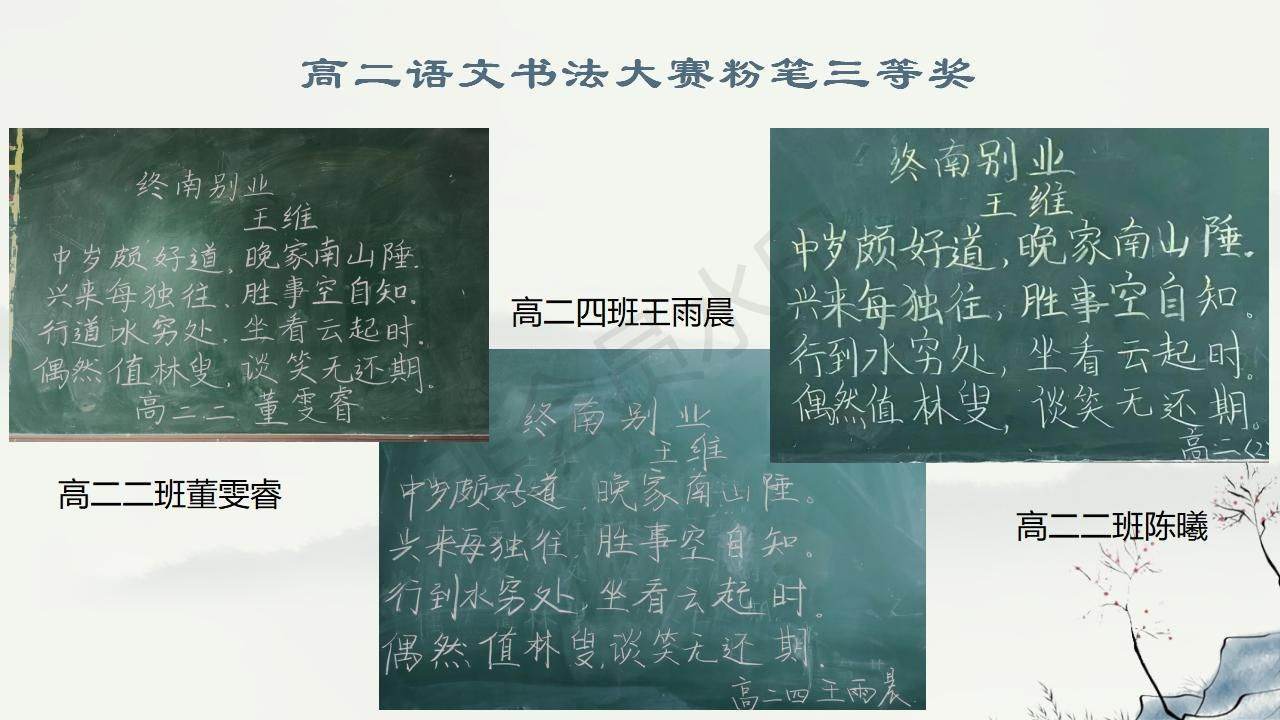 高二语文书法大赛粉笔三等奖
终南别业
王维
中岁颇好道,晚家南山陲.
兴来每独往,胜事空自知.
行道水穷处,坐看云起时.
偶然值林叟,谈笑无还期。
高二二 董雯睿
高二二班董雯睿
高二四班王雨晨
终南别业
王维
中岁颇好道,晚家南山陲。
兴来每独往,胜事空自知。
行到水穷处,坐看云起时。
偶然值林叟,谈笑无还期.
高二四王雨晨
终南别业
王维
中岁颇好道,晚家南山陲.
兴来每独往,胜事空自知。
行到水穷处,坐看云起时。
偶然值林叟,谈笑无还期。
高二(2
高二二班陈曦